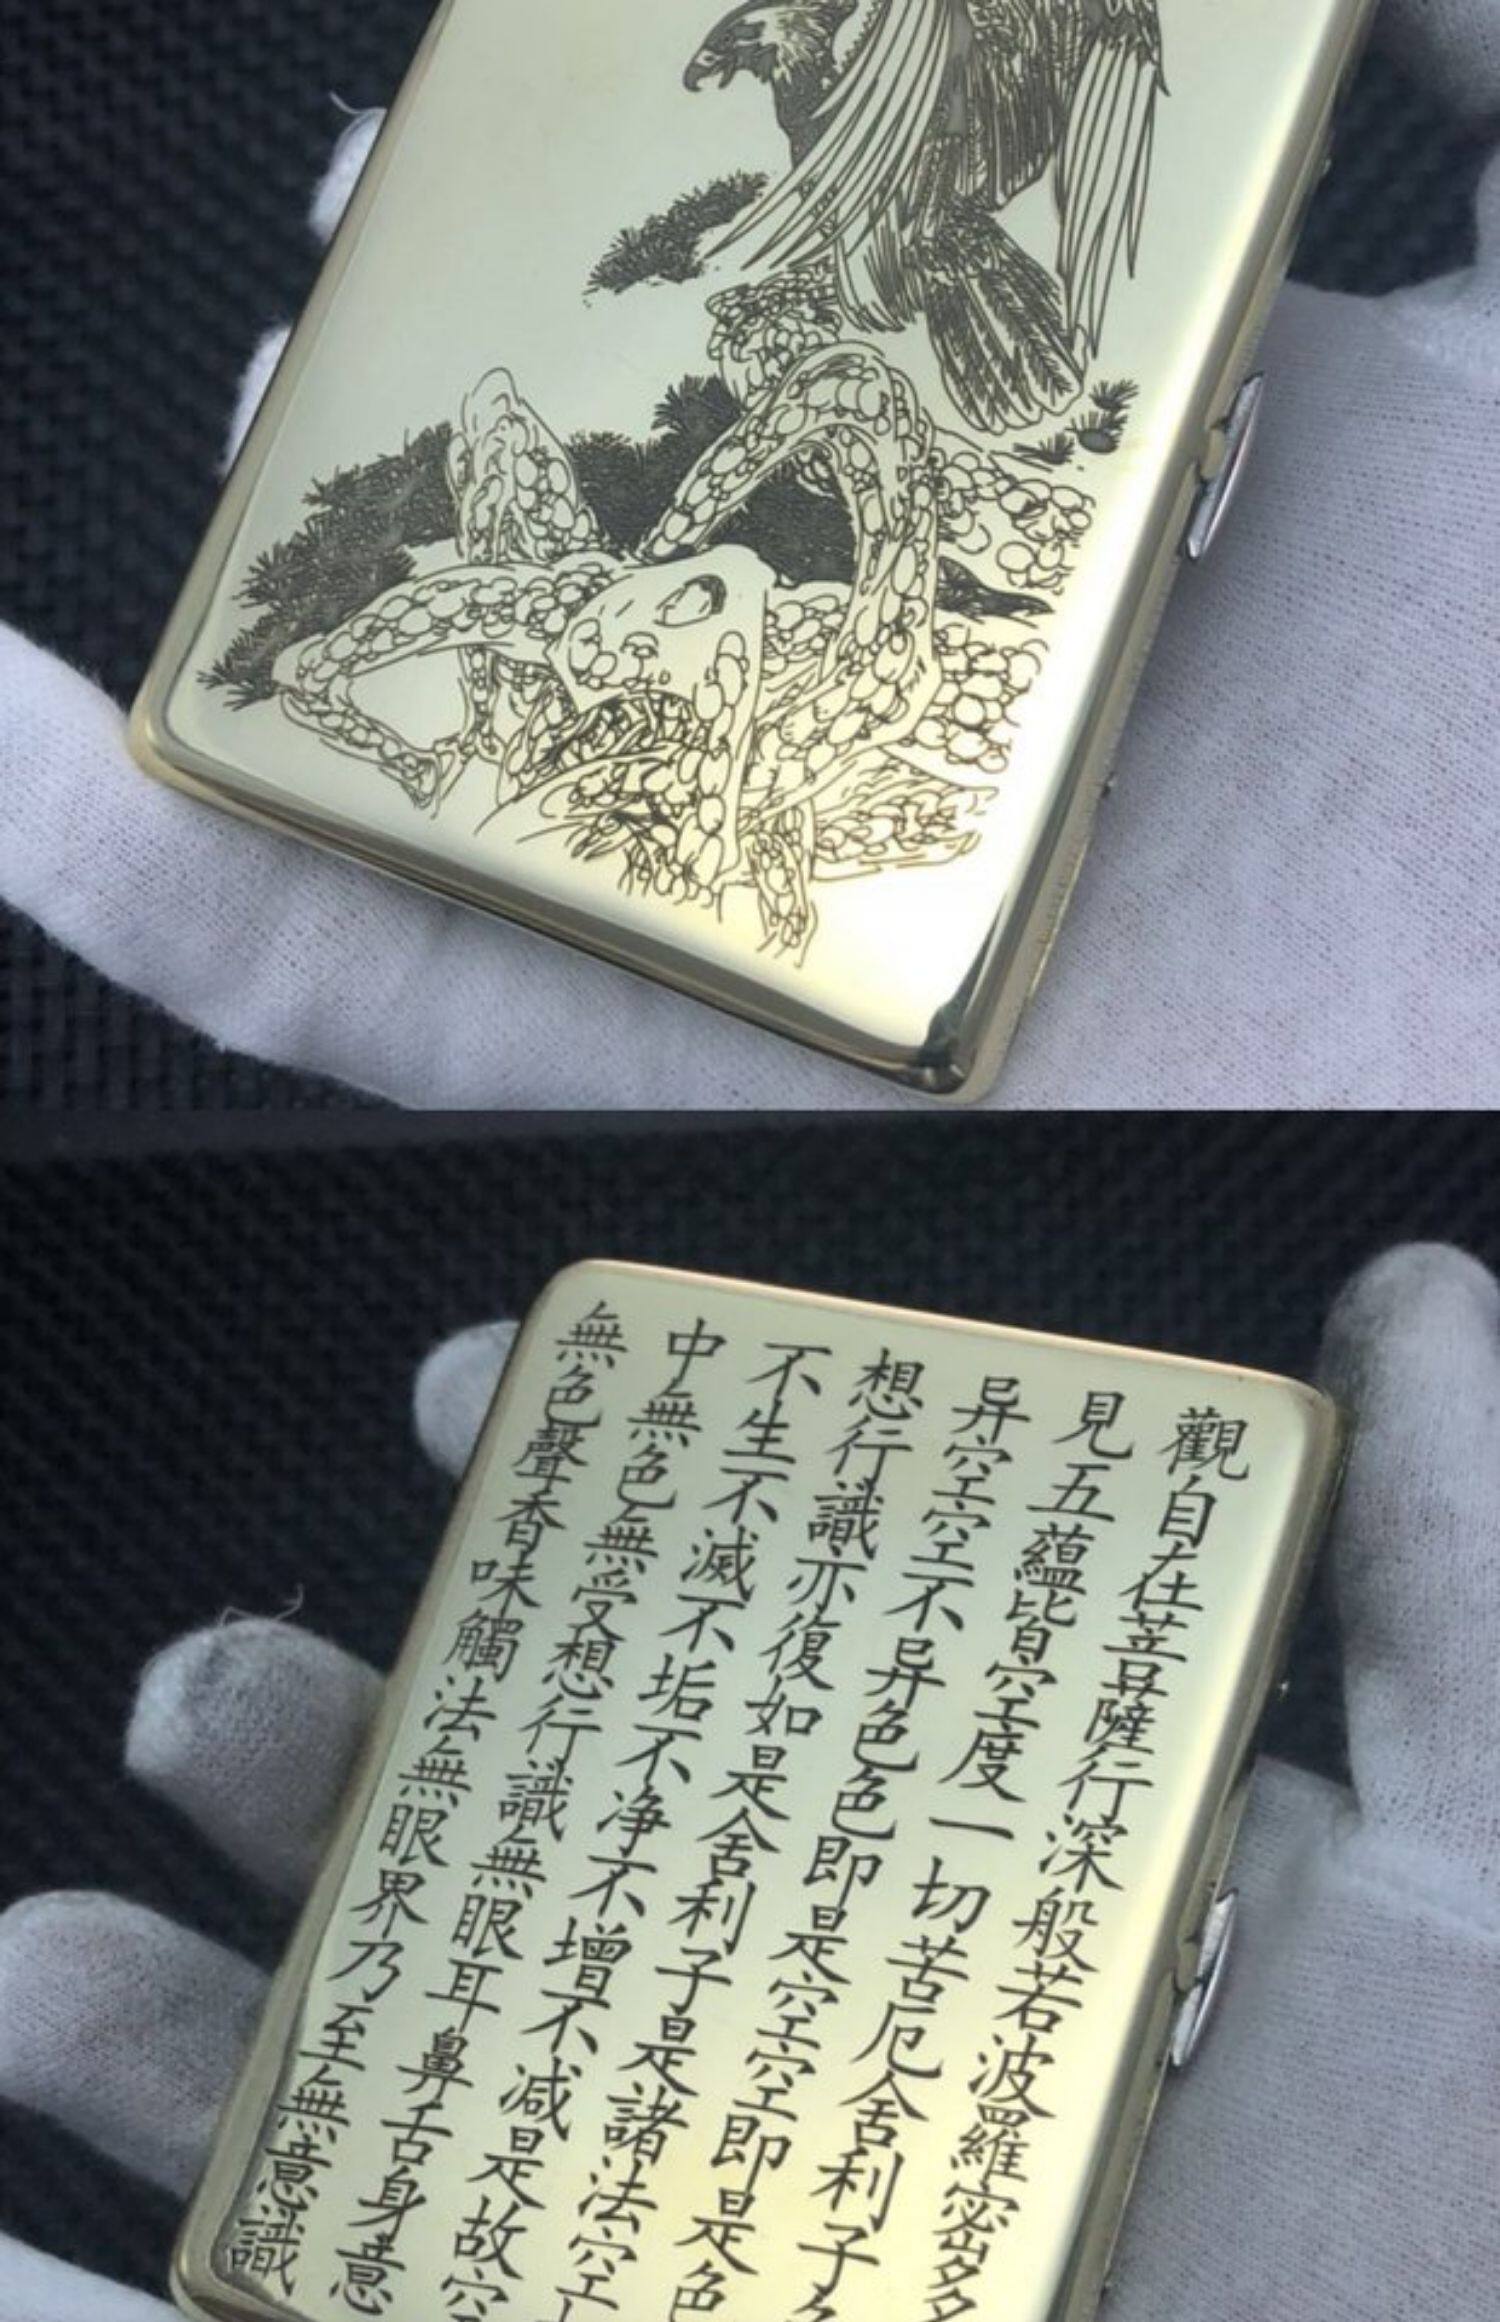 觀自在菩薩行深般若波羅密多
見五蘊皆空度一切苦厄舍利子
异空空不异色色即是空空即是色
想行識亦復如是舍利子是諸法空
不生不滅不垢不净不增不减是故空
中無色無受想行識無眼耳鼻舌身意
無色聲香味觸法無眼界乃至無意識